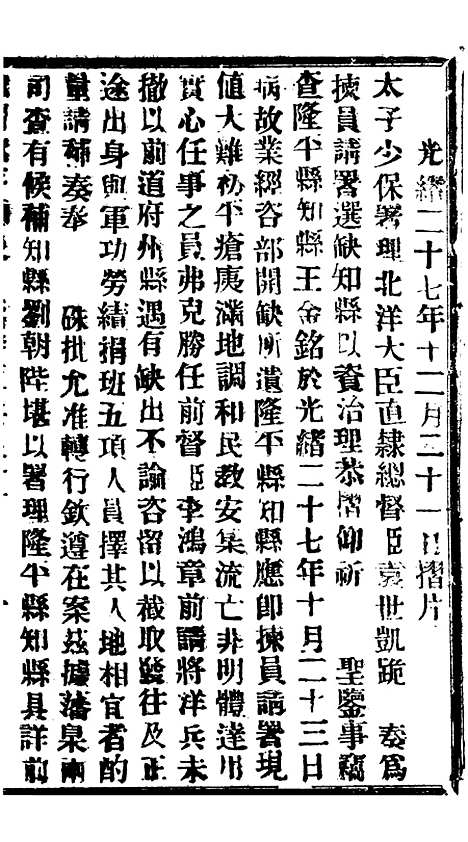 光緒二十七年十二月二十一日摺片
太子少保署理北洋大臣直隸總督臣袁世凱跪 奏爲
揀員請署選缺知縣以資治理恭摺仰祈 聖鑒事竊
查隆平縣知縣王金銘於光緒二十七年十月二十三日
病故業經咨部開缺所遺隆平縣知縣應卽揀員請署現
値大難初平瘡痍滿地調和民敎安集流亡非明體達用
實心任事之員弗克勝任前督臣李鴻章前請將洋兵未
撤以前道府州縣遇有缺出不論咨留以截取發往及正
途出身與軍功勞績捐班五項人員擇其人地相宜者酌
量請補奏奉 硃批允准轉行欽遵在案茲據藩臬兩
司查有候補知縣劉朝陛堪以署理隆平縣知縣具詳前